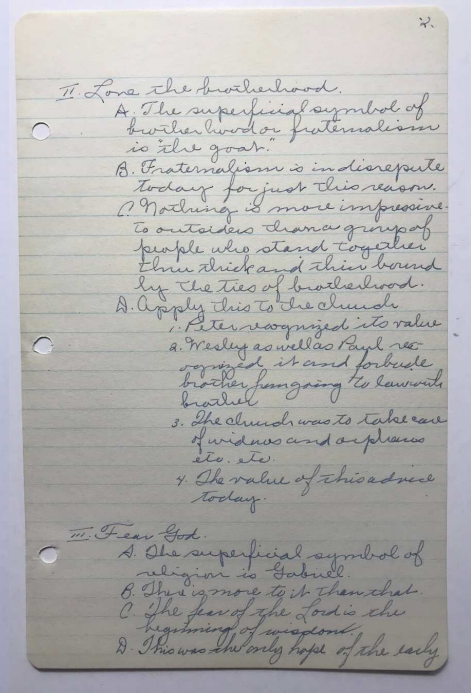 2.
II. Love the brotherhood.
A. The superficial symbol of
brotherhood or fraternalism
is "the goat."
B. Fraternalism is in disrepute
today for just this reason.
C. Nothing is more impressive
to outsiders than a group of
people who stand together
thru thick and thin bound
by the ties of brotherhood.
D. Apply this to the church
1. Peter recognized its value
2. Wesley as well as Paul rec
ognized it and forbade
brother from going to law with
brother
3. The church was to take care
of widows and orphans
etc. etc.
4. The value of this advice
today.
III. Fear God.
A. The superficial symbol of
religion is Gabriel.
B. There is more to it than that.
C. The fear of the Lord is the
beginning of wisdom.
D. This was the only hope of the early